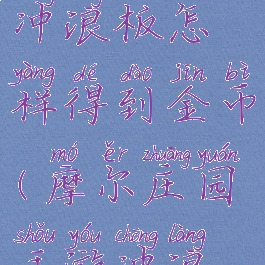 冲浪板怎
yàng dé dào jīn bì
样得到金币
mó ěr zhuāng yuán
（摩尔庄园
shǒu yóu chōng làng
手游冲浪